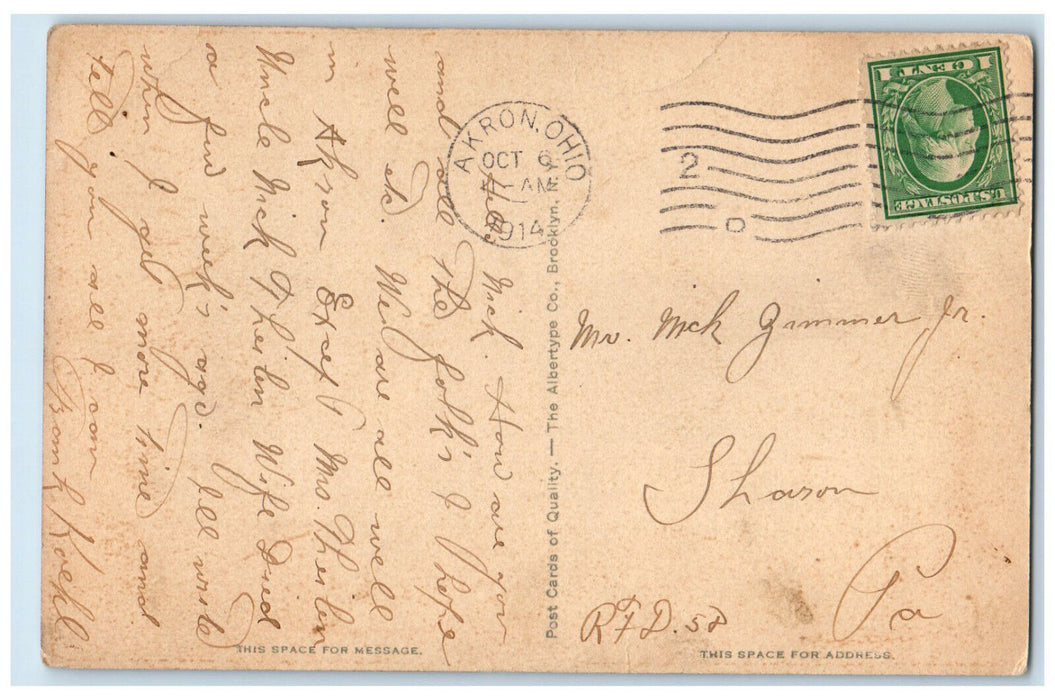 Hello Nick. How are you
and all the folk's I hope
well etc. We are all well
in Akron Except Mrs. Therlen
Uncle Nick Therlen Wife Died
a few week's ago. Ill write
when I get more time and
tell you all I can
Frank Koehl
THIS SPACE FOR MESSAGE.
Post Cards of Quality. — The Albertype Co., Brooklyn, N.Y.
AKRON, OHIO
OCT 6
AM
1914
2
D
U.S. POSTAGE
1 CENT 1
Mr. Nick Zimmer Jr.
Sharon
Pa
RFD. 58
THIS SPACE FOR ADDRESS.